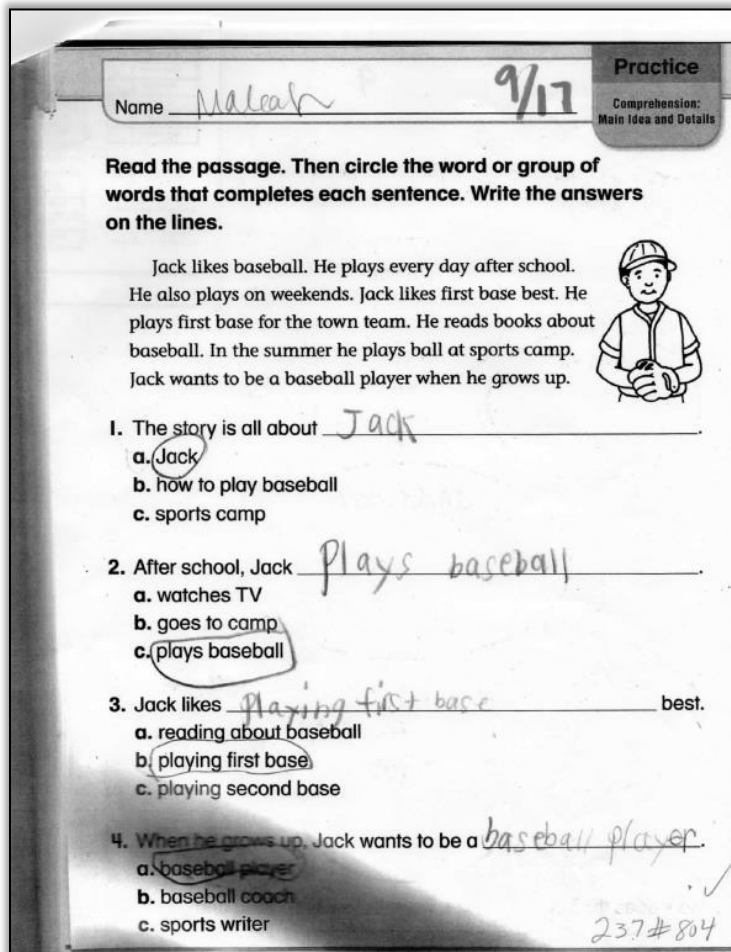 Practice
Comprehension:
Main Idea and Details
Name Maleah 9/17
Read the passage. Then circle the word or group of
words that completes each sentence. Write the answers
on the lines.
Jack likes baseball. He plays every day after school.
He also plays on weekends. Jack likes first base best. He
plays first base for the town team. He reads books about
baseball. In the summer he plays ball at sports camp.
Jack wants to be a baseball player when he grows up.
1. The story is all about Jack.
a. Jack
b. how to play baseball
c. sports camp
2. After school, Jack Plays baseball.
a. watches TV
b. goes to camp
c. plays baseball
3. Jack likes Playing first base best.
a. reading about baseball
b. playing first base
c. playing second base
4. When he grows up, Jack wants to be a baseball player.
a. baseball player
b. baseball coach
c. sports writer
237#804